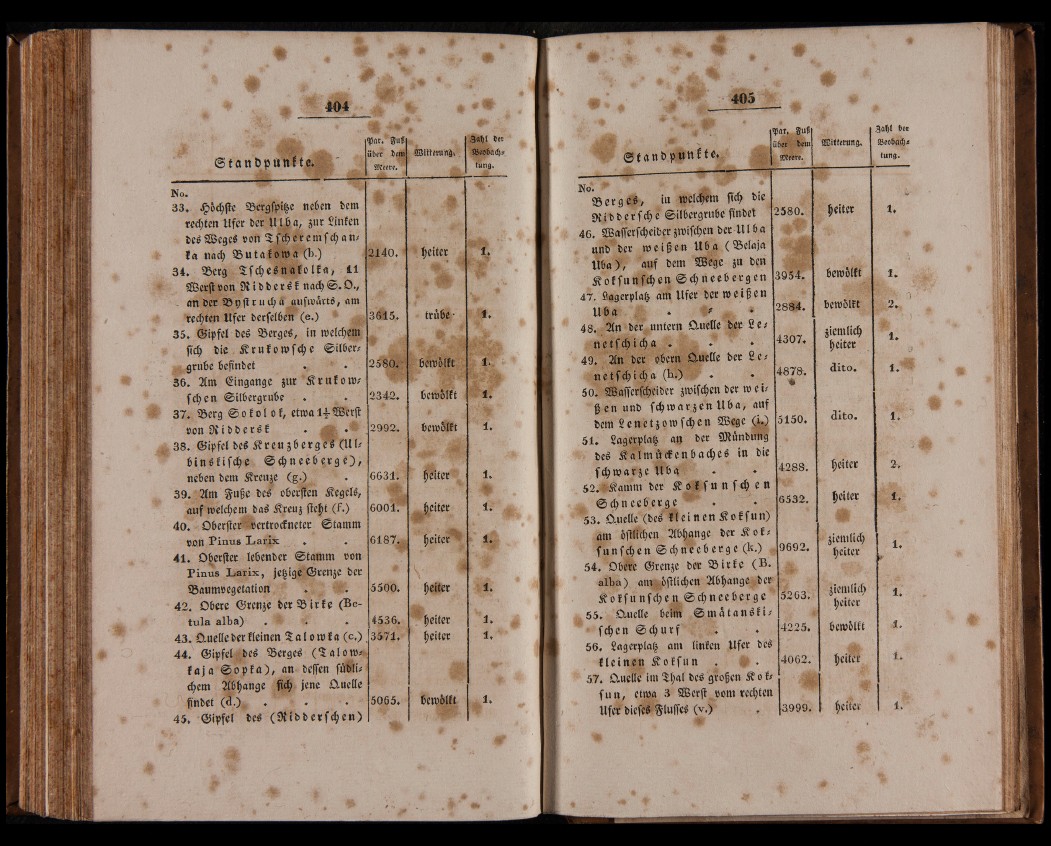 404
Standpunkte.
Par. Fuß über dem Meere.
Witterung.
Zahl der Beobach- tung.
No.
33. Höchste Bergspitze neben dem
rechten Ufer der Ulba, zur Linken
des Weges von Tscheremschan-
ka nach Butakowa (h.) 2140. heiter 1.
34. Berg Tschesnakolka, 11
Werst von Riddersk nach S. O.,
an der Bystrucha aufwärts, am
rechten Ufer derselben (e.) 3615. trübe 1.
35. Gipfel des Berges, in welchem
sich die Krukowsche Silber-
grube befindet . . 2580. bewölkt 1.
36. Am Eingange zur Krukow-
schen Silbergrube . . 2342. bewölkt 1.
37. Berg Sokolok, etwa 1½ Werst
von Riddersk . . 2992. bewölkt 1.
38. Gipfel des Kreuzberges (Ul-
binskische Schneeberge),
neben dem Kreuze (g.) . 6631. heiter 1.
39. Am Fuße des obersten Kegels,
auf welchem das Kreuz steht (f.) 6001. heiter 1.
40. Oberster vertrockneter Stamm
von Pinus Larix . . 6187. heiter 1.
41. Oberster lebender Stamm von
Pinus Larix, jetzige Grenze der
Baumvegetation . . 5500. heiter 1.
42. Obere Grenze der Birke (Be-
tula alba) . . . 4536. heiter 1.
43. Quelle der kleinen Talowka (c.) 3571. heiter 1.
44. Gipfel des Berges (Talow-
kaja Sopka), an dessen südli-
chem Abhange sich jene Quelle
findet (d.) . . . 5065. bewölkt 1.
45. Gipfel des (Ridderschen)
405
Standpunkte.
Par. Fuß über dem Meere.
Witterung.
Zahl der Beobach- tung.
No.
Berges, in welchem sich die
Riddersche Silbergrube findet 2580. heiter 1.
46. Wasserscheider zwischen der Ulba
und der weißen Uba (Belaja
Uba), auf dem Wege zu den
Koksunschen Schneebergen 3954. bewölkt 1.
47. Lagerplatz am Ufer der weißen
Uba . . . 2884. bewölkt 2.
48. An der untern Quelle der Le-
netschicha . . . 4307. ziemlich heiter 1.
49. An der obern Quelle der Le-
netschicha (h.) . . 4878. dito. 1.
50. Wasserscheider zwischen der wei-
ßen und schwarzen Uba, auf
dem Lenetzowschen Wege (i.) 5150. dito. 1.
51. Lagerplatz an der Mündung
des Kalmückenbaches in die
schwarze Uba . . 4288. heiter 2.
52. Kamm der Koksunschen
Schneeberge . . 6532. heiter 1.
53. Quelle (des kleinen Koksun)
am östlichen Abhange der Kok-
sunschen Schneeberge (k.) 9692. ziemlich heiter 1.
54. Obere Grenze der Birke (B.
alba) am östlichen Abhange der
Koksunschen Schneeberge 5263. ziemlich heiter 1.
55. Quelle beim Smätanski-
schen Schurf . . 4225. bewölkt 1.
56. Lagerplatz am linken Ufer des
kleinen Koksun . . 4062. heiter 1.
57. Quelle im Thal des großen Kok-
sun, etwa 3 Werst vom rechten
Ufer dieses Flusses (v.) . 3999. heiter 1.